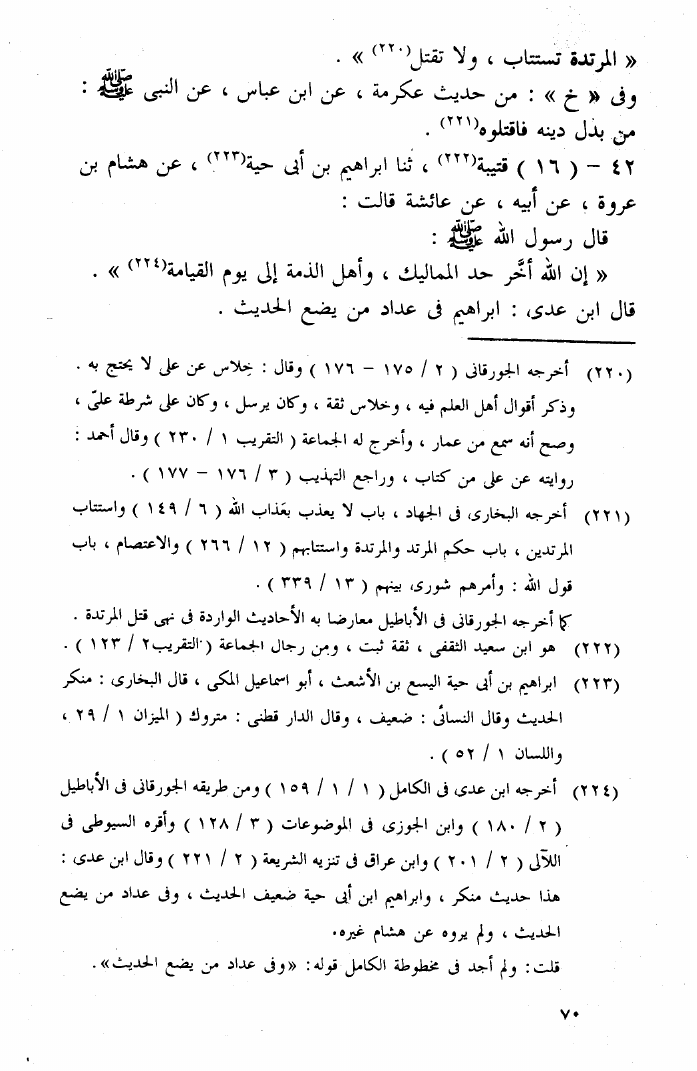 « المرتدة تستتاب ، ولا تقتل(٢٢٠) » .
وفى « خ » : من حديث عكرمة ، عن ابن عباس ، عن النبى ﷺ :
من بدل دينه فاقتلوه(٢٢١) .
٤٢ – ( ١٦ ) قتيبة(٢٢٢) ، ثنا ابراهيم بن أبى حية(٢٢٣) ، عن هشام بن
عروة ، عن أبيه ، عن عائشة قالت :
قال رسول الله ﷺ :
« إن الله أخَّر حد المماليك ، وأهل الذمة إلى يوم القيامة(٢٢٤) » .
قال ابن عدى : ابراهيم فى عداد من يضع الحديث .
(٢٢٠) أخرجه الجورقانى ( ٢ / ١٧٥ – ١٧٦ ) وقال : خِلاس عن على لا يحتج به .
وذكر أقوال أهل العلم فيه ، وخلاس ثقة ، وكان يرسل ، وكان على شرطة علىّ ،
وصح أنه سمع من عمار ، وأخرج له الجماعة ( التقريب ١ / ٢٣٠ ) وقال أحمد :
روايته عن على من كتاب ، وراجع التهذيب ( ٣ / ١٧٦ – ١٧٧ ) .
(٢٢١) أخرجه البخارى فى الجهاد ، باب لا يعذب بعَذاب الله ( ٦ / ١٤٩ ) واستتاب
المرتدين ، باب حكم المرتد والمرتدة واستتابهم ( ١٢ / ٢٦٦ ) والاعتصام ، باب
قول الله : وأمرهم شورى بينهم ( ١٣ / ٣٣٩ ) .
كما أخرجه الجورقانى فى الأباطيل معارضا به الأحاديث الواردة فى نهى قتل المرتدة .
(٢٢٢) هو ابن سعيد الثقفى ، ثقة ثبت ، ومن رجال الجماعة ( التقريب٢ / ١٢٣ ) .
(٢٢٣) ابراهيم بن أبى حية اليسع بن الأشعث ، أبو اسماعيل المكى ، قال البخارى : منكر
الحديث وقال النسائى : ضعيف ، وقال الدار قطنى : متروك ( الميزان ١ / ٢٩ ،
واللسان ١ / ٥٢ ) .
(٢٢٤) أخرجه ابن عدى فى الكامل ( ١ / ١ / ١٥٩ ) ومن طريقه الجورقانى فى الأباطيل
( ٢ / ١٨٠ ) وابن الجوزى فى الموضوعات ( ٣ / ١٢٨ ) وأقره السيوطى فى
اللآلى ( ٢ / ٢٠١ ) وابن عراق فى تنزيه الشريعة ( ٢ / ٢٢١ ) وقال ابن عدى :
هذا حديث منكر ، وابراهيم ابن أبى حية ضعيف الحديث ، وفى عداد من يضع
الحديث ، ولم يروه عن هشام غيره.
قلت : ولم أجد فى مخطوطة الكامل قوله : «وفى عداد من يضع الحديث» .
٧٠